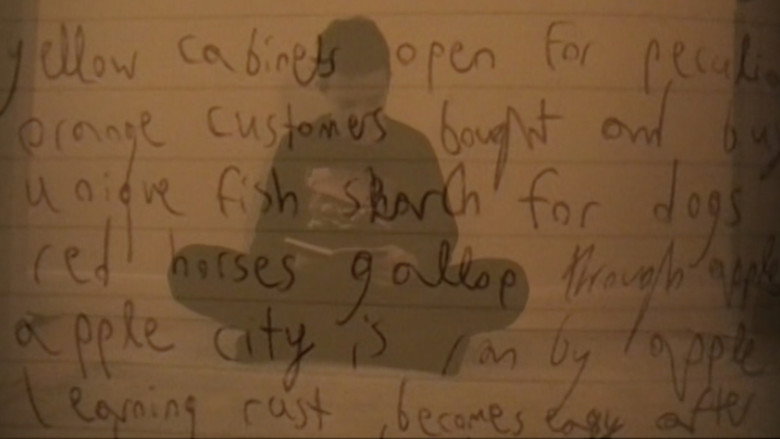 yellow cabinets open for
orange customers bought and
unique fish search for dogs
red horses gallop through
apple city is ran by apple
learning rust becomes easy after